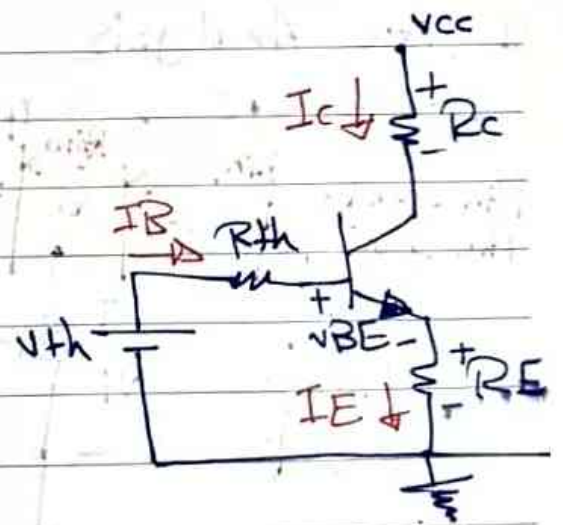 VCC
Ic
Rc
IB
Rth
Vth
VBE
RE
IE